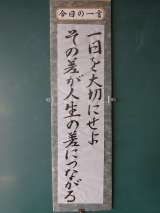 今日の一言
一日を大切にせよ
その差が人生の差につながる